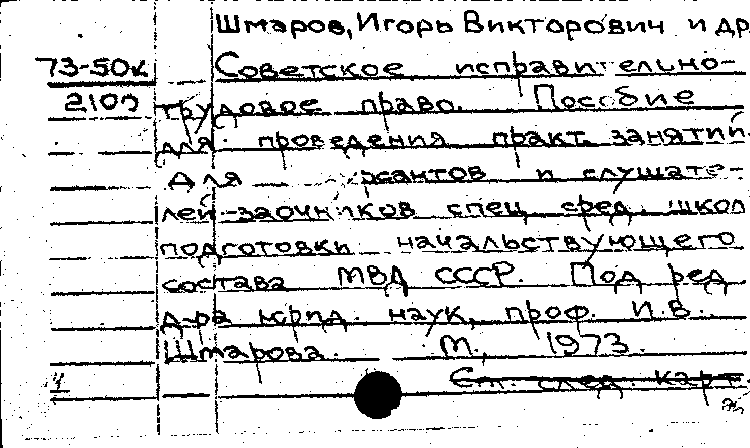 Шмаров, Игорь Викторович и др
73-50к Советское исправительно-
трудовое право. Пособие
для проведения практ. занятий
для курсантов и слушате-
лей-заочников спец. сред. школ
подготовки начальствующего
состава МВД СССР. Под ред
д-ра юрид. наук, проф. И.В.
Шмарова. М., 1973.
См. след. карт.